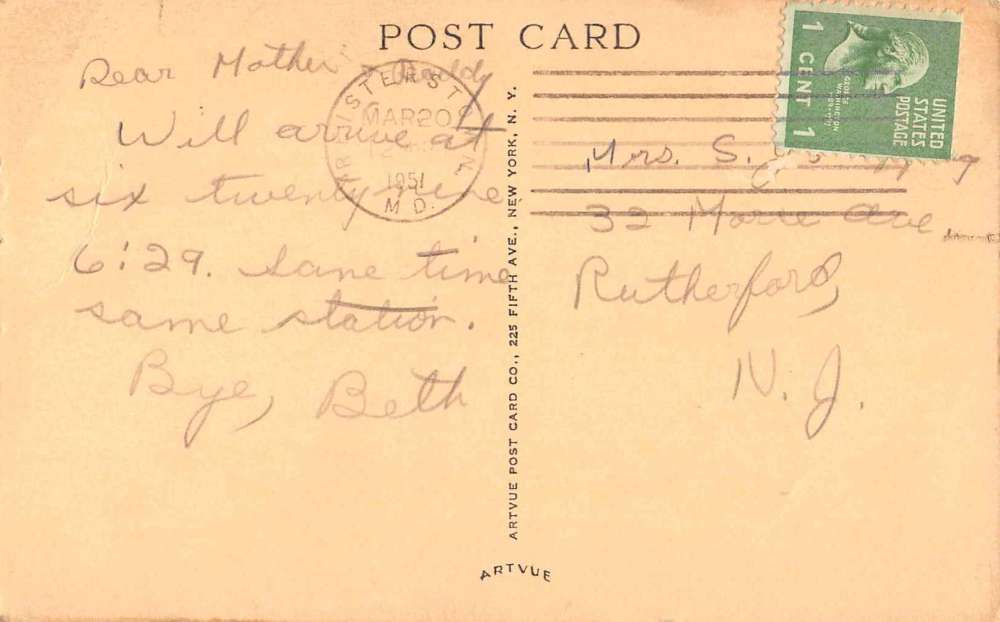 POST CARD
Dear Mother & Daddy
Will arrive at
six twenty nine
6:29. Same time
same station.
Bye, Beth
REISTERSTOWN
MAR 20
1951
MD.
ARTVUE POST CARD CO., 225 FIFTH AVE., NEW YORK, N. Y.
ARTVUE
UNITED
STATES
POSTAGE
GEORGE
WASHINGTON
1 CENT 1
Mrs. S.
32 Ave.
Rutherford,
N. J.